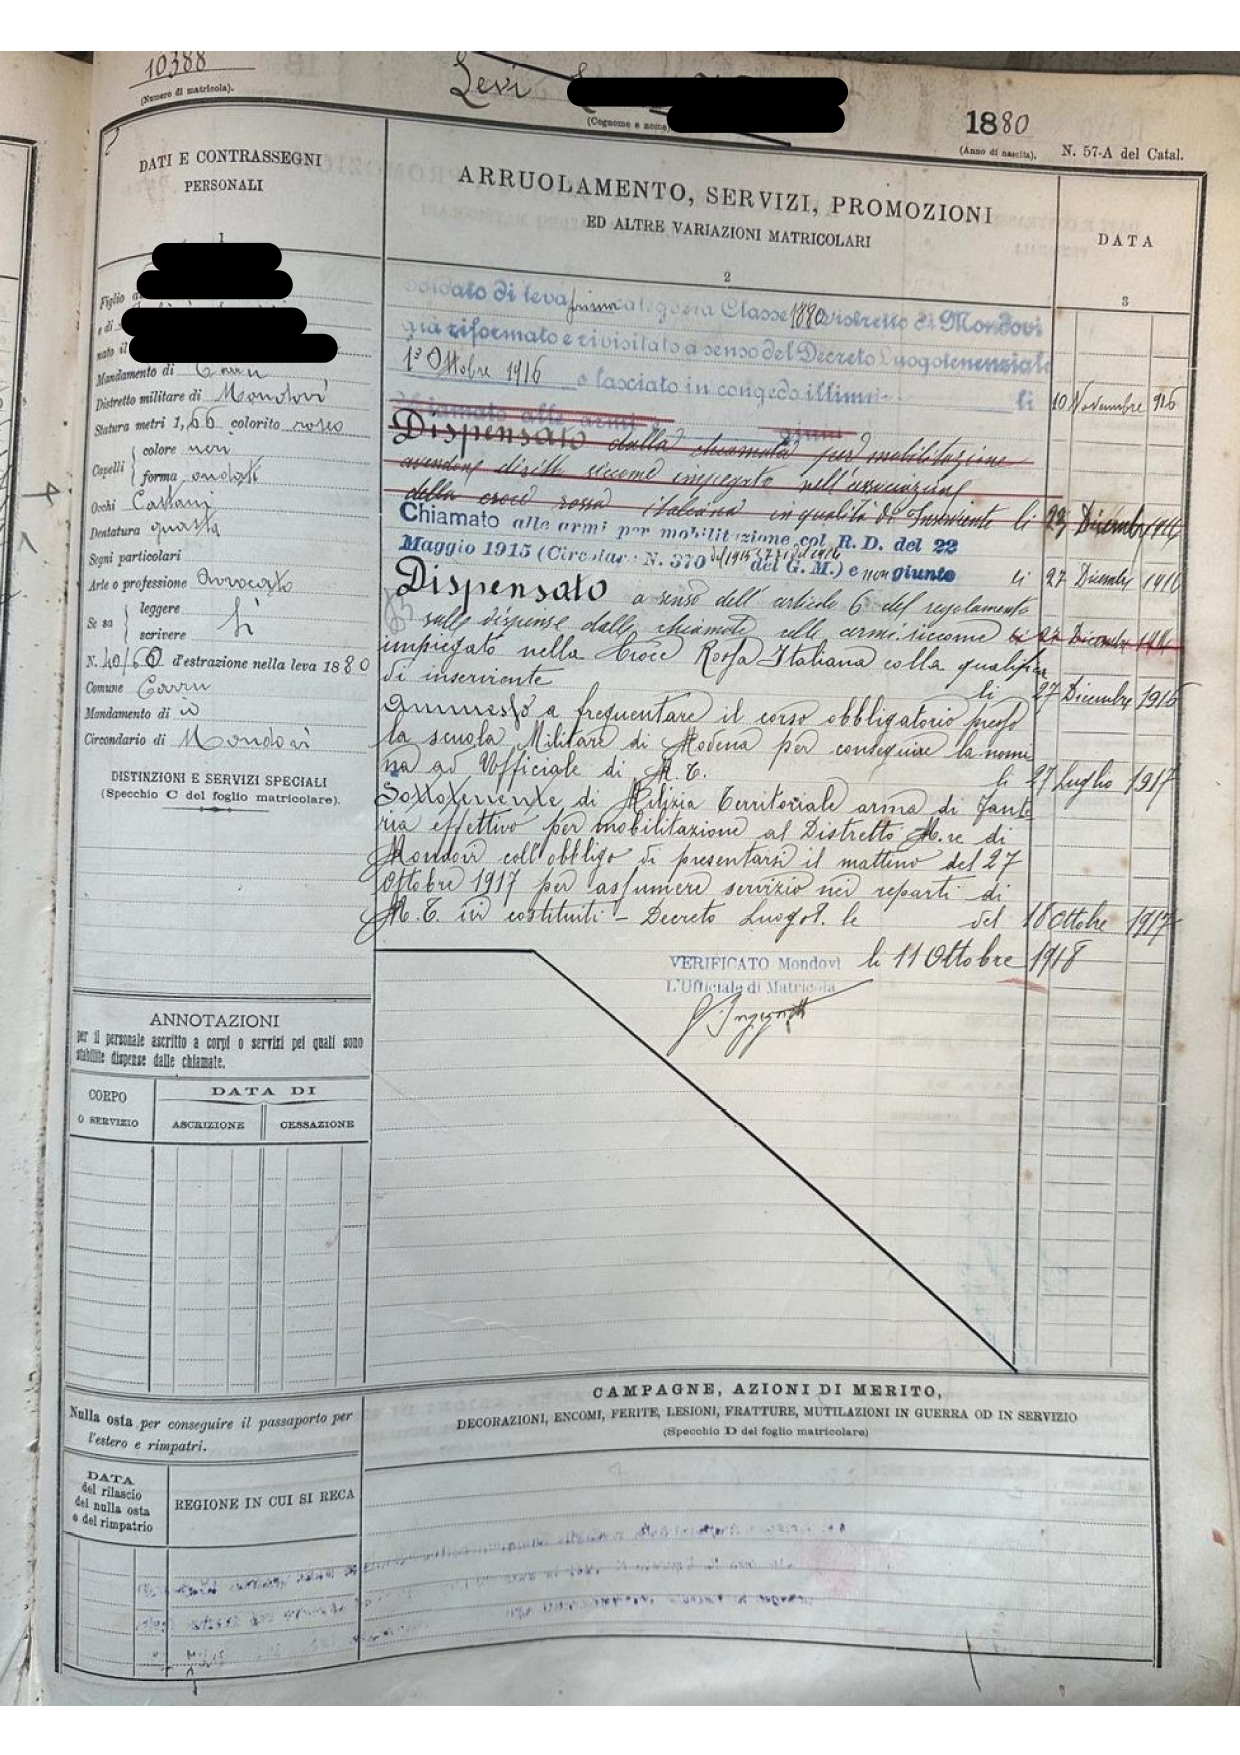 10388
(Numero di matricola).
Levi
(Cognome e nome)
1880
(Anno di nascita).
N. 57-A del Catal.
DATI E CONTRASSEGNI
PERSONALI
1
Figlio
e di
nato il
Mandamento di Carrù
Distretto militare di Mondovì
Statura metri 1,66 colorito roseo
Capelli
colore neri
forma ondati
Occhi Castani
Dentatura guasta
Segni particolari
Arte o professione Avvocato
Se sa
leggere
scrivere
sì
N. 40/60 d'estrazione nella leva 1880
Comune Carrù
Mandamento di id
Circondario di Mondovì
DISTINZIONI E SERVIZI SPECIALI
(Specchio C del foglio matricolare).
ARRUOLAMENTO, SERVIZI, PROMOZIONI
ED ALTRE VARIAZIONI MATRICOLARI
2
DATA
3
Soldato di leva prima categoria Classe 1880 distretto di Mondovì
già riformato e rivisitato a senso del Decreto Luogotenenziale
1° Ottobre 1916 e lasciato in congedo illim. li 10 Novembre 916
Chiamato alle armi e giunto
Dispensato dalla chiamata per mobilitazione
avendone diritto siccome impiegato nell'associazione
della croce rossa italiana in qualità di Inserviente li 23 Dicembre 1916
Chiamato alle armi per mobilitazione col R. D. del 22
Maggio 1915 (Circolare N. 370 del 1915 del G. M.) e non giunto li 27 Dicembre 1916
Dispensato a senso dell'articolo 6 del regolamento
sulle dispense dalle chiamate alle armi siccome li 27 Dicembre 1916
impiegato nella Croce Rossa Italiana colla qualifica
di inserviente li 27 Dicembre 1916
Ammesso a frequentare il corso obbligatorio presso
la scuola Militare di Modena per conseguire la nomi
na ad Ufficiale di M. T. li 27 Luglio 1917
Sottotenente di Milizia Territoriale arma di fante
ria effettivo per mobilitazione al Distretto M.re di
Mondovì coll'obbligo di presentarsi il mattino del 27
Ottobre 1917 per assumere servizio nei reparti di
M. T. ivi costituiti - Decreto Luogot. le del 18 Ottobre 1917
VERIFICATO Mondovì li 11 Ottobre 1918
L'Ufficiale di Matricola
ANNOTAZIONI
per il personale ascritto a corpi o servizi pei quali sono
stabilite dispense dalle chiamate.
CORPO
O SERVIZIO
DATA DI
ASCRIZIONE
CESSAZIONE
CAMPAGNE, AZIONI DI MERITO,
DECORAZIONI, ENCOMI, FERITE, LESIONI, FRATTURE, MUTILAZIONI IN GUERRA OD IN SERVIZIO
(Specchio D del foglio matricolare)
Nulla osta per conseguire il passaporto per
l'estero e rimpatri.
DATA
del rilascio
del nulla osta
e del rimpatrio
REGIONE IN CUI SI RECA